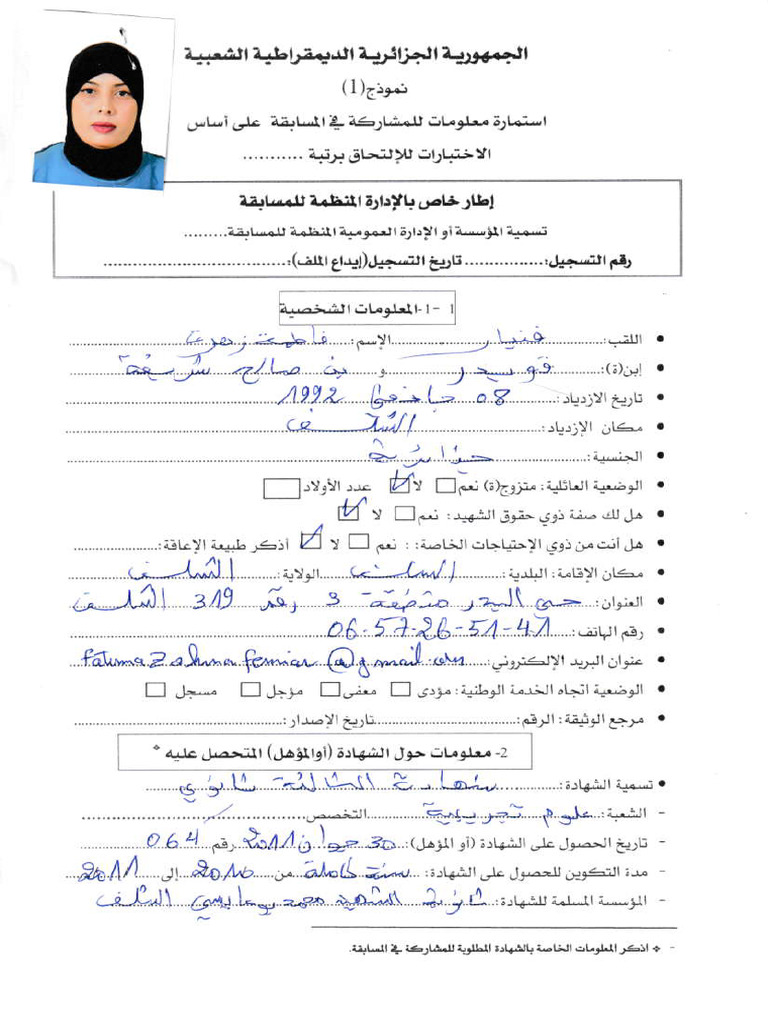 الجمهورية الجزائرية الديمقراطية الشعبية
نموذج(1)
استمارة معلومات للمشاركة في المسابقة على أساس
الاختبارات للإلتحاق برتبة ...........
إطار خاص بالإدارة المنظمة للمسابقة
تسمية المؤسسة أو الإدارة العمومية المنظمة للمسابقة.........
رقم التسجيل:................ تاريخ التسجيل(إيداع الملف):........................................
1 -1-المعلومات الشخصية
• اللقب: فنيار الإسم: فاطمة زهرة
• إبن(ة): قويدر و بن صالح شريفة
• تاريخ الازدياد: 08 جانفي 1992
• مكان الإزدياد: الشلف
• الجنسية: جزائرية
• الوضعية العائلية: متزوج(ة) نعم لا عدد الأولاد
• هل لك صفة ذوي حقوق الشهيد: نعم لا
• هل أنت من ذوي الإحتياجات الخاصة: : نعم لا أذكر طبيعة الإعاقة:
• مكان الإقامة: البلدية: الشلف الولاية: الشلف
• العنوان: حي البدر منطقة 3 رقم 319 الشلف
• رقم الهاتف: 06-57-26-51-41
• عنوان البريد الإلكتروني: @gmail.com
• الوضعية اتجاه الخدمة الوطنية: مؤدى معفى مؤجل مسجل
• مرجع الوثيقة: الرقم: تاريخ الإصدار:
2- معلومات حول الشهادة (أوالمؤهل) المتحصل عليه *
• تسمية الشهادة: شهادة الثالثة ثانوي
- الشعبة: علوم تجريبية التخصص: /
- تاريخ الحصول على الشهادة (أو المؤهل): 30 جوان 2011 رقم 064
- مدة التكوين للحصول على الشهادة: سنة كاملة من 2010 إلى 2011
- المؤسسة المسلمة للشهادة: ثانوية الشهيد محمد الشلف
- * اذكر المعلومات الخاصة بالشهادة المطلوبة للمشاركة في المسابقة.